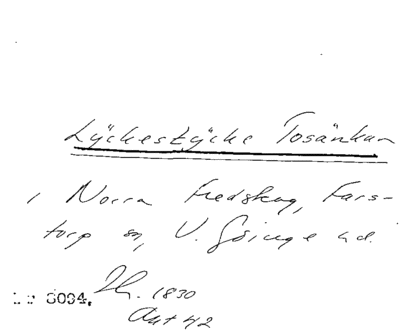 Lyckestycke Tosänkan
i Norra Fredskog, Fars-
torp sn, V. Göinge hd.
1830
Akt 42